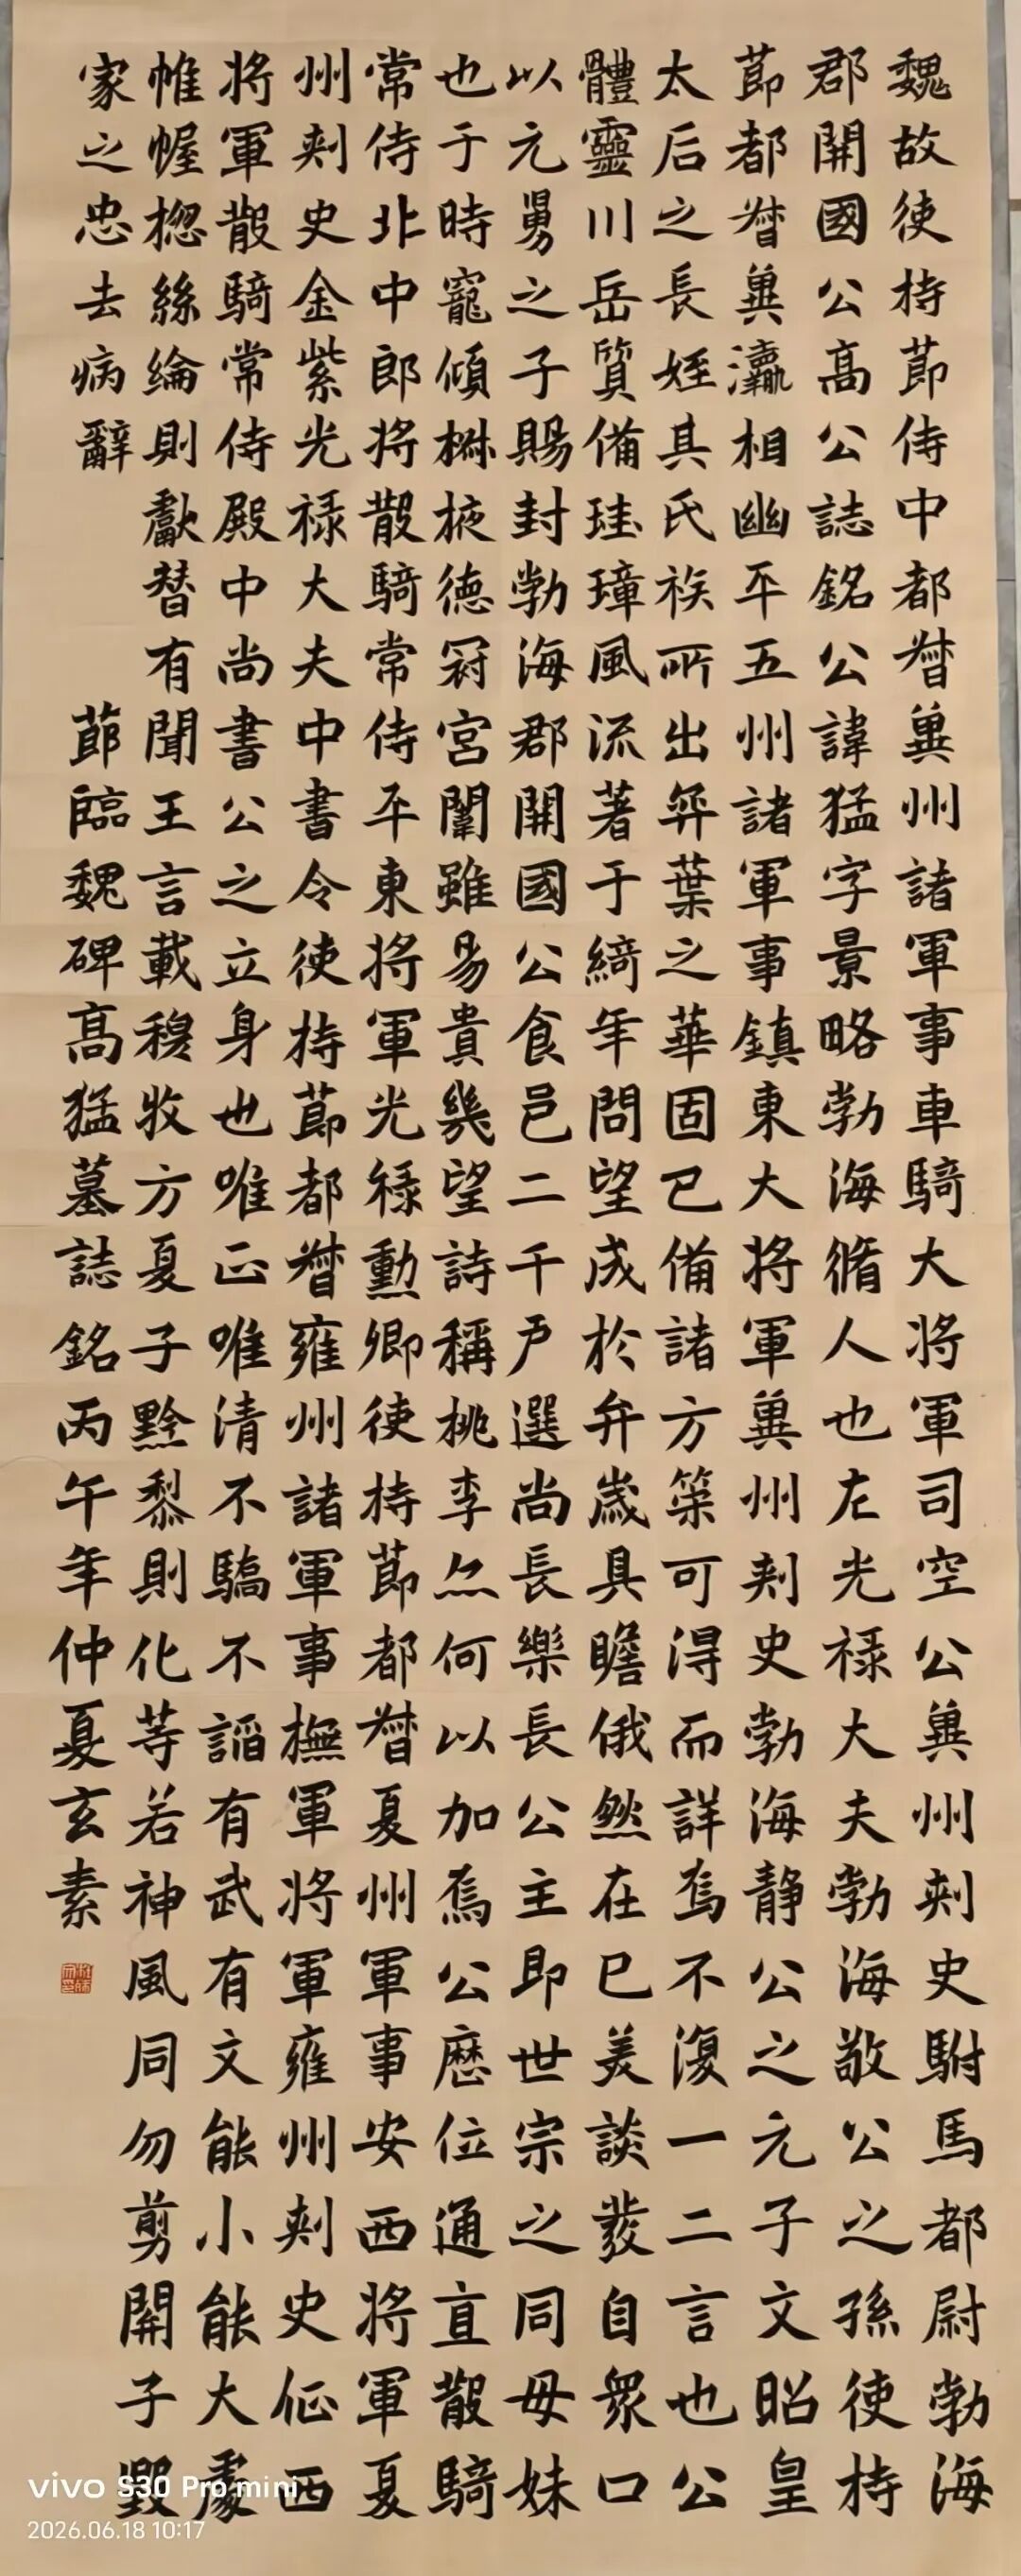 魏故使持節侍中都督冀州諸軍事車騎大將軍司空公冀州刺史駙馬都尉勃海
郡開國公高公誌銘公諱猛字景略勃海脩人也左光祿大夫勃海敬公之孫使持
節都督冀瀛相幽平五州諸軍事鎮東大將軍冀州刺史勃海靜公之元子文昭皇
太后之長姪其氏族所出弈葉之華固已備諸方策可得而詳焉不復一二言也公
體靈川岳質備珪璋風流著于綺年問望成於弁歲具瞻俄然在已美談發自眾口
以元舅之子賜封勃海郡開國公食邑二千戶選尚長樂長公主即世宗之同母妹
也于時寵傾椒掖德冠宮闈雖易貴幾望詩稱桃李亦何以加焉公歷位通直散騎
常侍北中郎將散騎常侍平東將軍光祿勳卿使持節都督夏州軍事安西將軍夏
州刺史金紫光祿大夫中書令使持節都督雍州諸軍事撫軍將軍雍州刺史征西
將軍散騎常侍殿中尚書公之立身也唯正唯清不驕不謟有武有文能小能大處
帷幄揔絲綸則獻替有聞王言載穆牧方夏子黔黎則化等若神風同勿剪開子罰
家之忠去病辭
節臨魏碑高猛墓誌銘丙午年仲夏玄素
vivo S30 Pro mini
2026.06.18 10:17